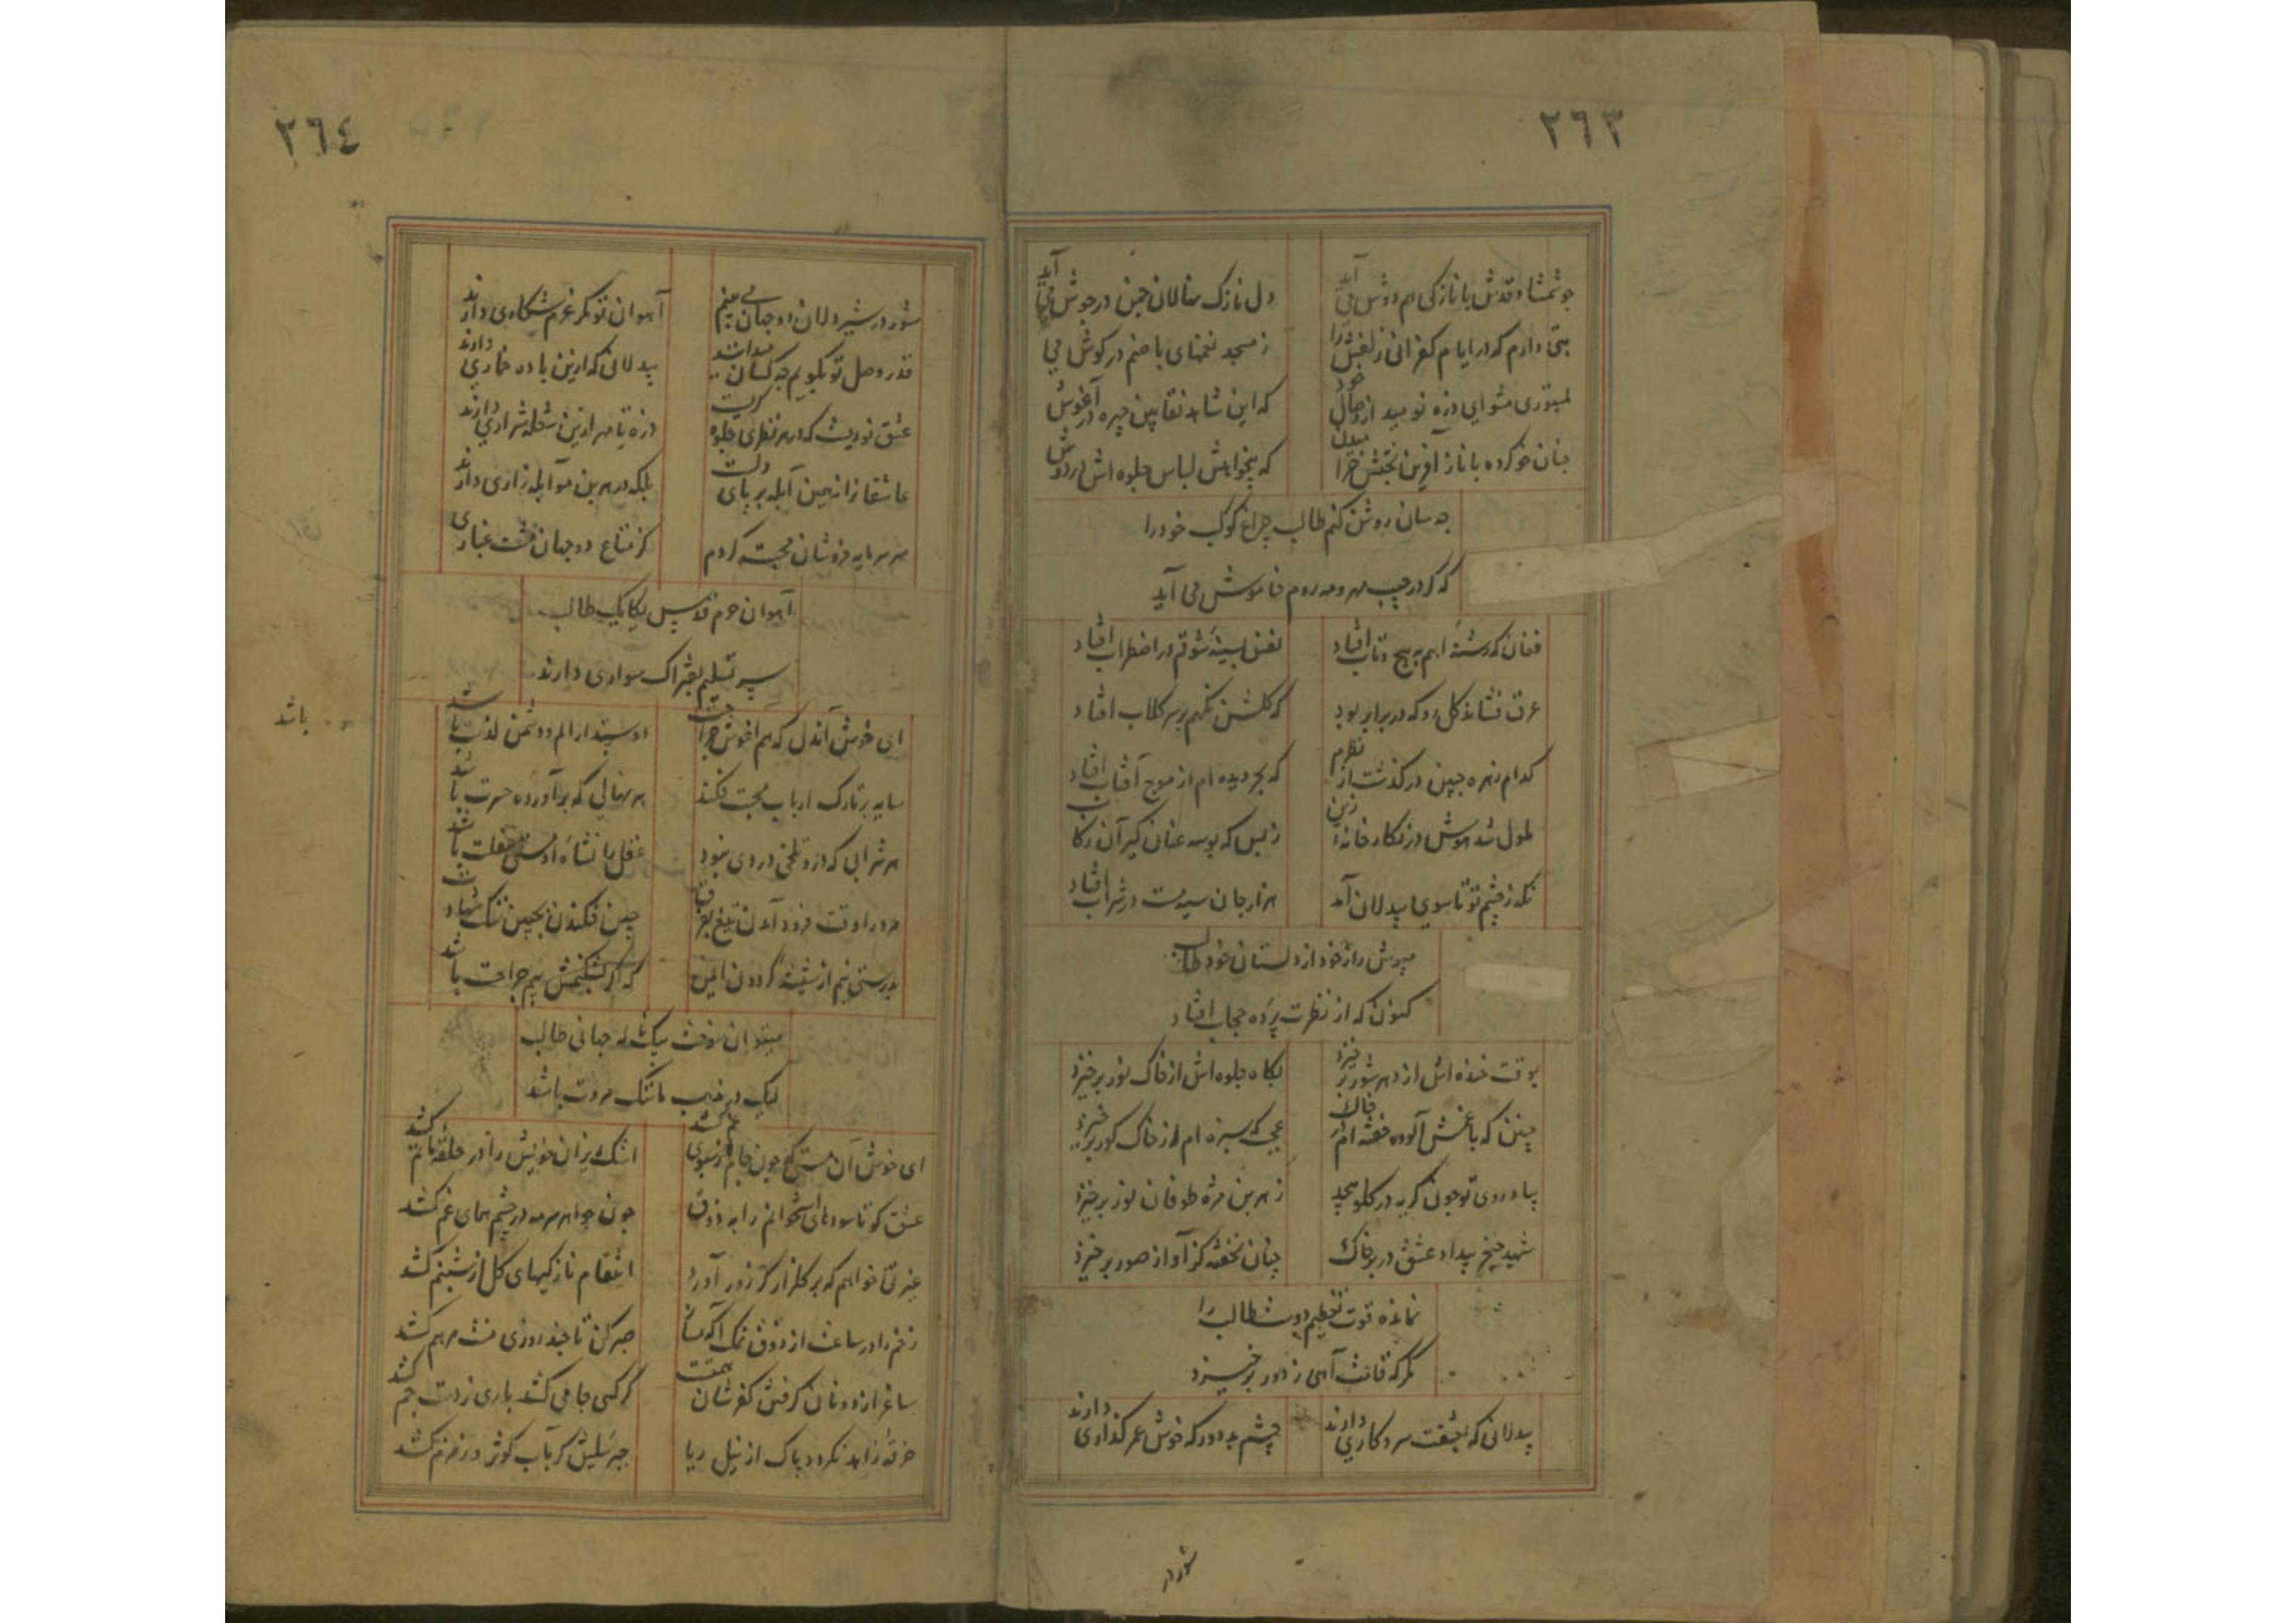 ٢٦٣
چو شمشاد قدش با نازکی هم دوش می آید
دل نازک نهالان چمن در جوش می آید
بتی دارم که در ایام کفرانی زلفش را
ز مسجد نغمهای یا صنم در گوش می
مشو ای ذره نومید از وصال خود
که این شاهد نقابین چهره در آغوش
چنان خو کرده با ناز آفرین نخلش
که لباس جلوه اش بر دوش
چه سان روشن کنم طالب چراغ کوکب خود را
که گر در جیب مهر و مه روم خاموش می آید
فغان که رشتهٔ اهم به پیچ و تاب افتاد
نفس بسینهٔ شوقم در اضطراب افتاد
عرق فشاند گل او که در برابر بود
که گلشن نگهم بر سر گلاب افتاد
کدام زهره جبین در گذشت از نظرم
که بحر دیده ام از موج آفتاب افتاد
ملول شد هوش در نگارخانهٔ زین
ز بس که بوسه عنان گیر آن رکاب
نگه ز چشم تو تا سوی بیدلان آمد
هزار جان سیه مست در شراب افتاد
مپوش راز خود از دلستان خود طالب
کنون که از نظرت پرده حجاب افتاد
بوقت خنده اش از دهر شور بر خیزد
بگاه جلوه اش از خاک نور بر خیزد
چنین که با غمش آلوده خفته ام در خاک
عجب که سبزه ام از خاک گور بر خیزد
بیاد روی تو چون گریه در گلو پیچد
ز هر بن مژه طوفان نور بر خیزد
شهید خنجر بیداد عشق در بر خاک
چنان نخفته کز آواز صور بر خیزد
نمانده قوت تعظیم دوست طالب را
مگر که قامت آهی ز دور بر خیزد
بیدلانی که بعشقت سر و کاری دارند
چشم بد دور که خوش عمر گذاری دارند
شور در
٢٦٤
شور در شیر دلان دو جهان می بینم
آهوان تو مگر عزم شکاری دارند
قدر وصل تو بگویم چه کسان میدانند
بیدلانی که ازین باده خماری دارند
عشق نوریست که در هر نظری جلوه گریست
ذره تا مهر ازین شعله شراری دارند
عاشقان را نه همین آبله بر پای دلست
بلکه در هر بن مو آبله زاری دارند
سر سرمایه فروشان محبت گردم
کز متاع دو جهان مشت غباری
آهوان حرم قدس یکایک طالب
سر تسلیم بفتراک سواری دارند
ای خوش آندل که هم آغوش جراحت
دوستدار الم و دشمن لذت باشد
باشد
سایه بر تارک ارباب محبت فکند
هر نهالی که بر آورده حسرت باشد
هر شرابی که درو تلخی دردی نبود
عقل را نشاه او مستی غفلت باشد
مرد را وقت فرود آمدن تیغ بفرق
چین فکندن بجبین ننگ شهادت
بدرستی نیم از شیشهٔ گردون ایمن
که گر نشکنمش بیم جراحت باشد
میتوان سوخت بیک ناله جهانی طالب
لیک در مذهب ما ننگ مروت باشد
ای خوش آن مستی که چون جامم ز سبوی غم کشد
اشک ریزان خویش را در حلقهٔ ماتم کشد
عشق کو تا سودهای استخوانم را به ذوق
چون جواهر سرمه در چشم همای غم کشد
غیرتی خواهم که بر گلزار گر زور آورد
انتقام نازکیهای گل از شبنم کشد
زخم را در ساعت از ذوق نمک آگه
صبر کن تا چند روزی منت مرهم کشد
ساغر از دونان گرفتن کفر شان همتست
گر کسی جامی کشد باری ز دست جم کشد
خرقهٔ زاهد نگردد پاک از نیل ریا
جبرئیلش گر بآب کوثر و زمزم کشد